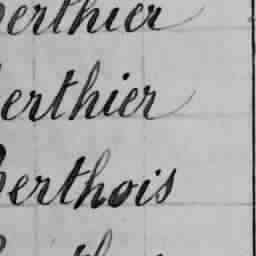 erthier
erthier
erthois